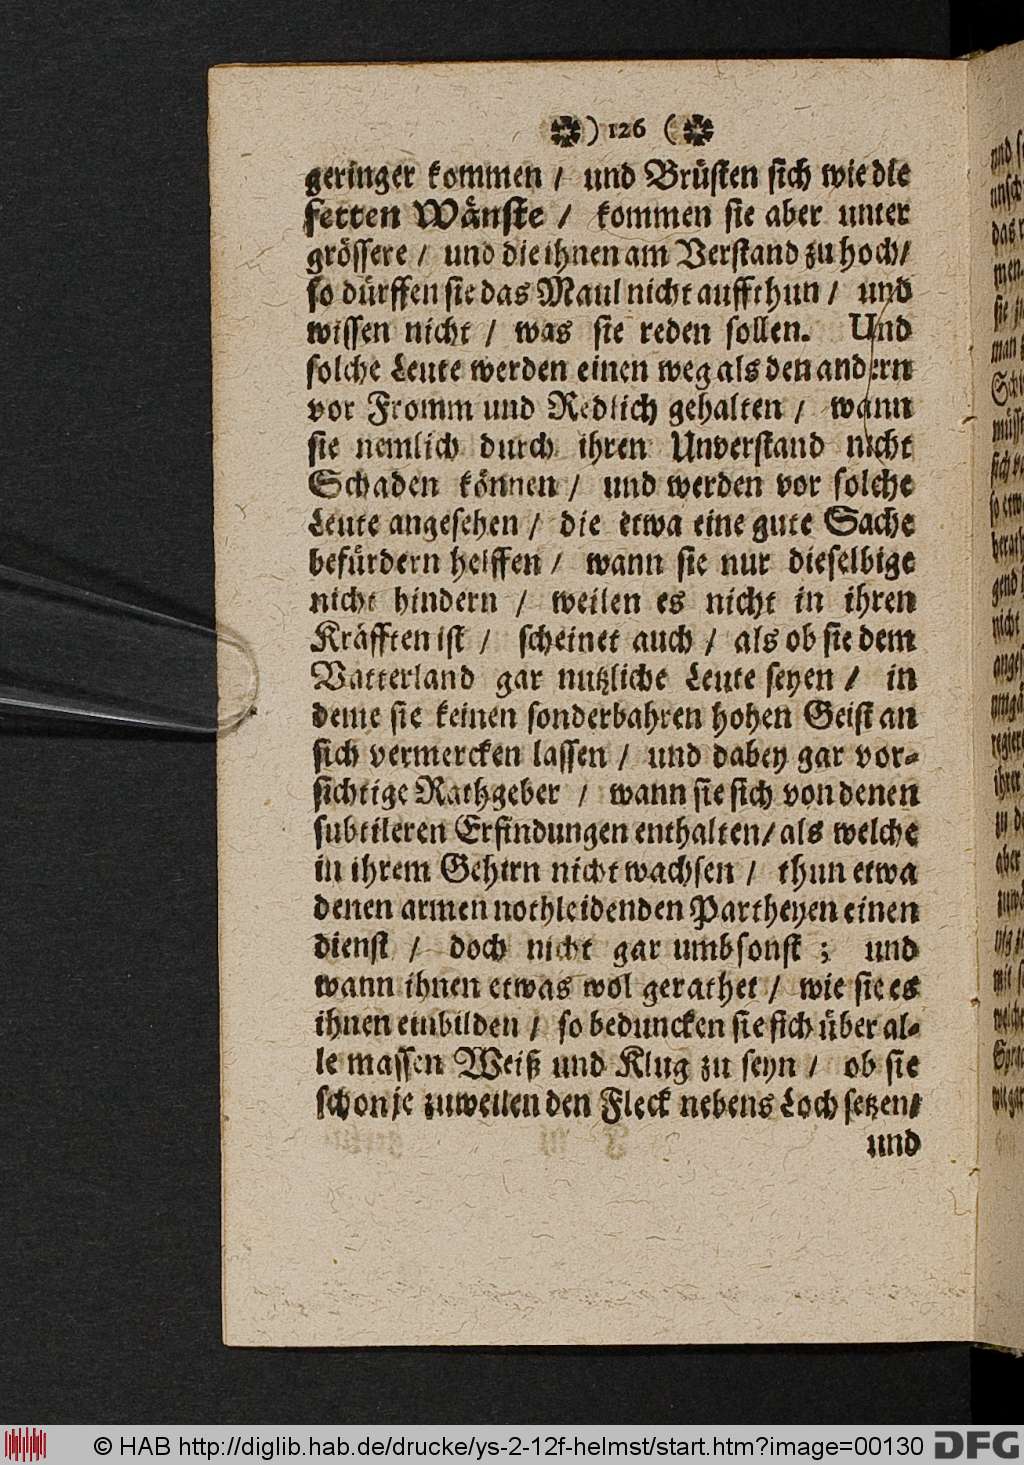 ) 126 (
geringer kommen / und Brüsten sich wie die
fetten Wänste / kommen sie aber unter
grössere / und die ihnen am Verstand zu hoch/
so dürffen sie das Maul nicht auffthun / und
wissen nicht / was sie reden sollen. Und
solche Leute werden einen weg als den andern
vor Fromm und Redlich gehalten / wann
sie nemlich durch ihren Unverstand nicht
Schaden können / und werden vor solche
Leute angesehen / die etwa eine gute Sache
befürdern helffen / wann sie nur dieselbige
nicht hindern / weilen es nicht in ihren
Kräfften ist / scheinet auch / als ob sie dem
Vatterland gar nutzliche Leute seyen / in
deme sie keinen sonderbahren hohen Geist an
sich vermercken lassen / und dabey gar vor-
sichtige Rathgeber / wann sie sich von denen
subtileren Erfindungen enthalten/ als welche
in ihrem Gehirn nicht wachsen / thun etwa
denen armen nothleidenden Partheyen einen
dienst / doch nicht gar umbsonst ; und
wann ihnen etwas wol gerathet / wie sie es
ihnen einbilden / so beduncken sie sich über al-
le massen Weiß und Klug zu seyn / ob sie
schon je zuweilen den Fleck nebens Loch setzen/
und
© HAB http://diglib.hab.de/drucke/ys-2-12f-helmst/start.htm?image=00130
DFG